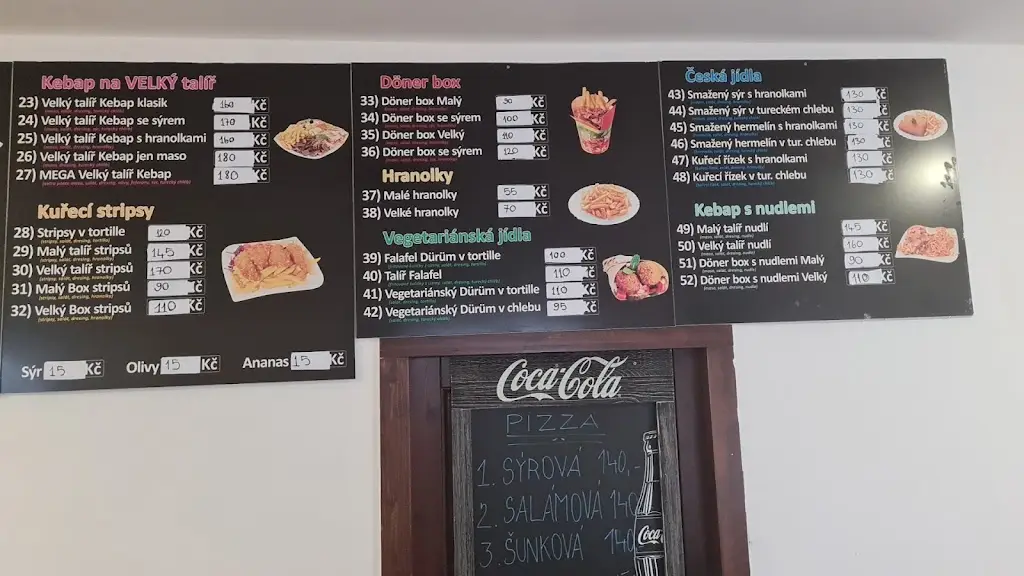 Kebap na VELKÝ talíř
23) Velký talíř Kebap klasik 160 Kč
24) Velký talíř Kebap se sýrem 170 Kč
25) Velký talíř Kebap s hranolkami 160 Kč
26) Velký talíř Kebap jen maso 180 Kč
27) MEGA Velký talíř Kebap 180 Kč
Kuřecí stripsy
28) Stripsy v tortille 120 Kč
(stripsy, salát, dresing, tortilla)
29) Malý talíř stripsů 145 Kč
(stripsy, salát, dresing, hranolky)
30) Velký talíř stripsů 170 Kč
(stripsy, salát, dresing, hranolky)
31) Malý Box stripsů 90 Kč
(stripsy, salát, dresing, hranolky)
32) Velký Box stripsů 110 Kč
(stripsy, salát, dresing, hranolky)
Sýr 15 Kč Olivy 15 Kč Ananas 15 Kč
Döner box
33) Döner box Malý 90 Kč
34) Döner box se sýrem 100 Kč
35) Döner box Velký 110 Kč
36) Döner box se sýrem 120 Kč
Hranolky
37) Malé hranolky 55 Kč
38) Velké hranolky 70 Kč
Vegetariánská jídla
39) Falafel Dürüm v tortille 100 Kč
40) Talíř Falafel 110 Kč
41) Vegetariánský Dürüm v tortille 110 Kč
42) Vegetariánský Dürüm v chlebu 95 Kč
Česká jídla
43) Smažený sýr s hranolkami 130 Kč
44) Smažený sýr v tureckém chlebu 130 Kč
45) Smažený hermelín s hranolkami 130 Kč
46) Smažený hermelín v tur. chlebu 130 Kč
47) Kuřecí řízek s hranolkami 130 Kč
48) Kuřecí řízek v tur. chlebu 130 Kč
Kebap s nudlemi
49) Malý talíř nudlí 145 Kč
50) Velký talíř nudlí 160 Kč
51) Döner box s nudlemi Malý 90 Kč
52) Döner box s nudlemi Velký 110 Kč
Coca-Cola
PIZZA
1. SÝROVÁ 140,-
2. SALÁMOVÁ 140
3. ŠUNKOVÁ 140
Coca